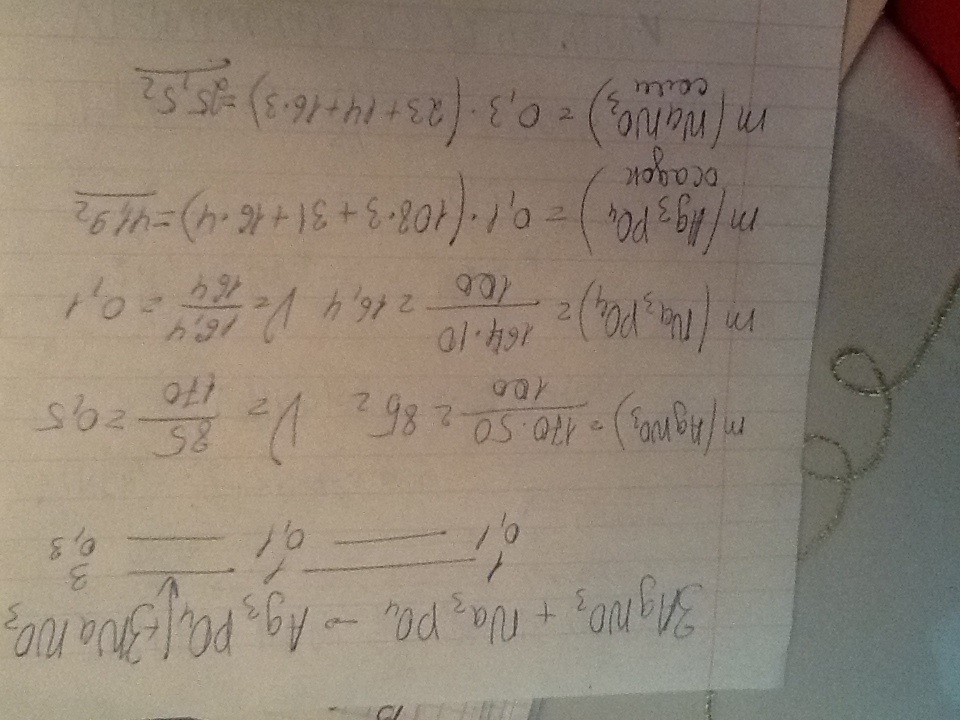 3AgNO₃ + Na₃PO₄ → Ag₃PO₄↓ + 3NaNO₃
1 — 1 — 3
0,1 — 0,1 — 0,3
m(AgNO₃) = 170·50/100 = 85г ν = 85/170 = 0,5
m(Na₃PO₄) = 164·10/100 = 16,4 ν = 16,4/164 = 0,1
m(Ag₃PO₄) = 0,1·(108·3+31+16·4) = 41,9г
осадок
m(NaNO₃) = 0,3·(23+14+16·3) = 25,5г
соли